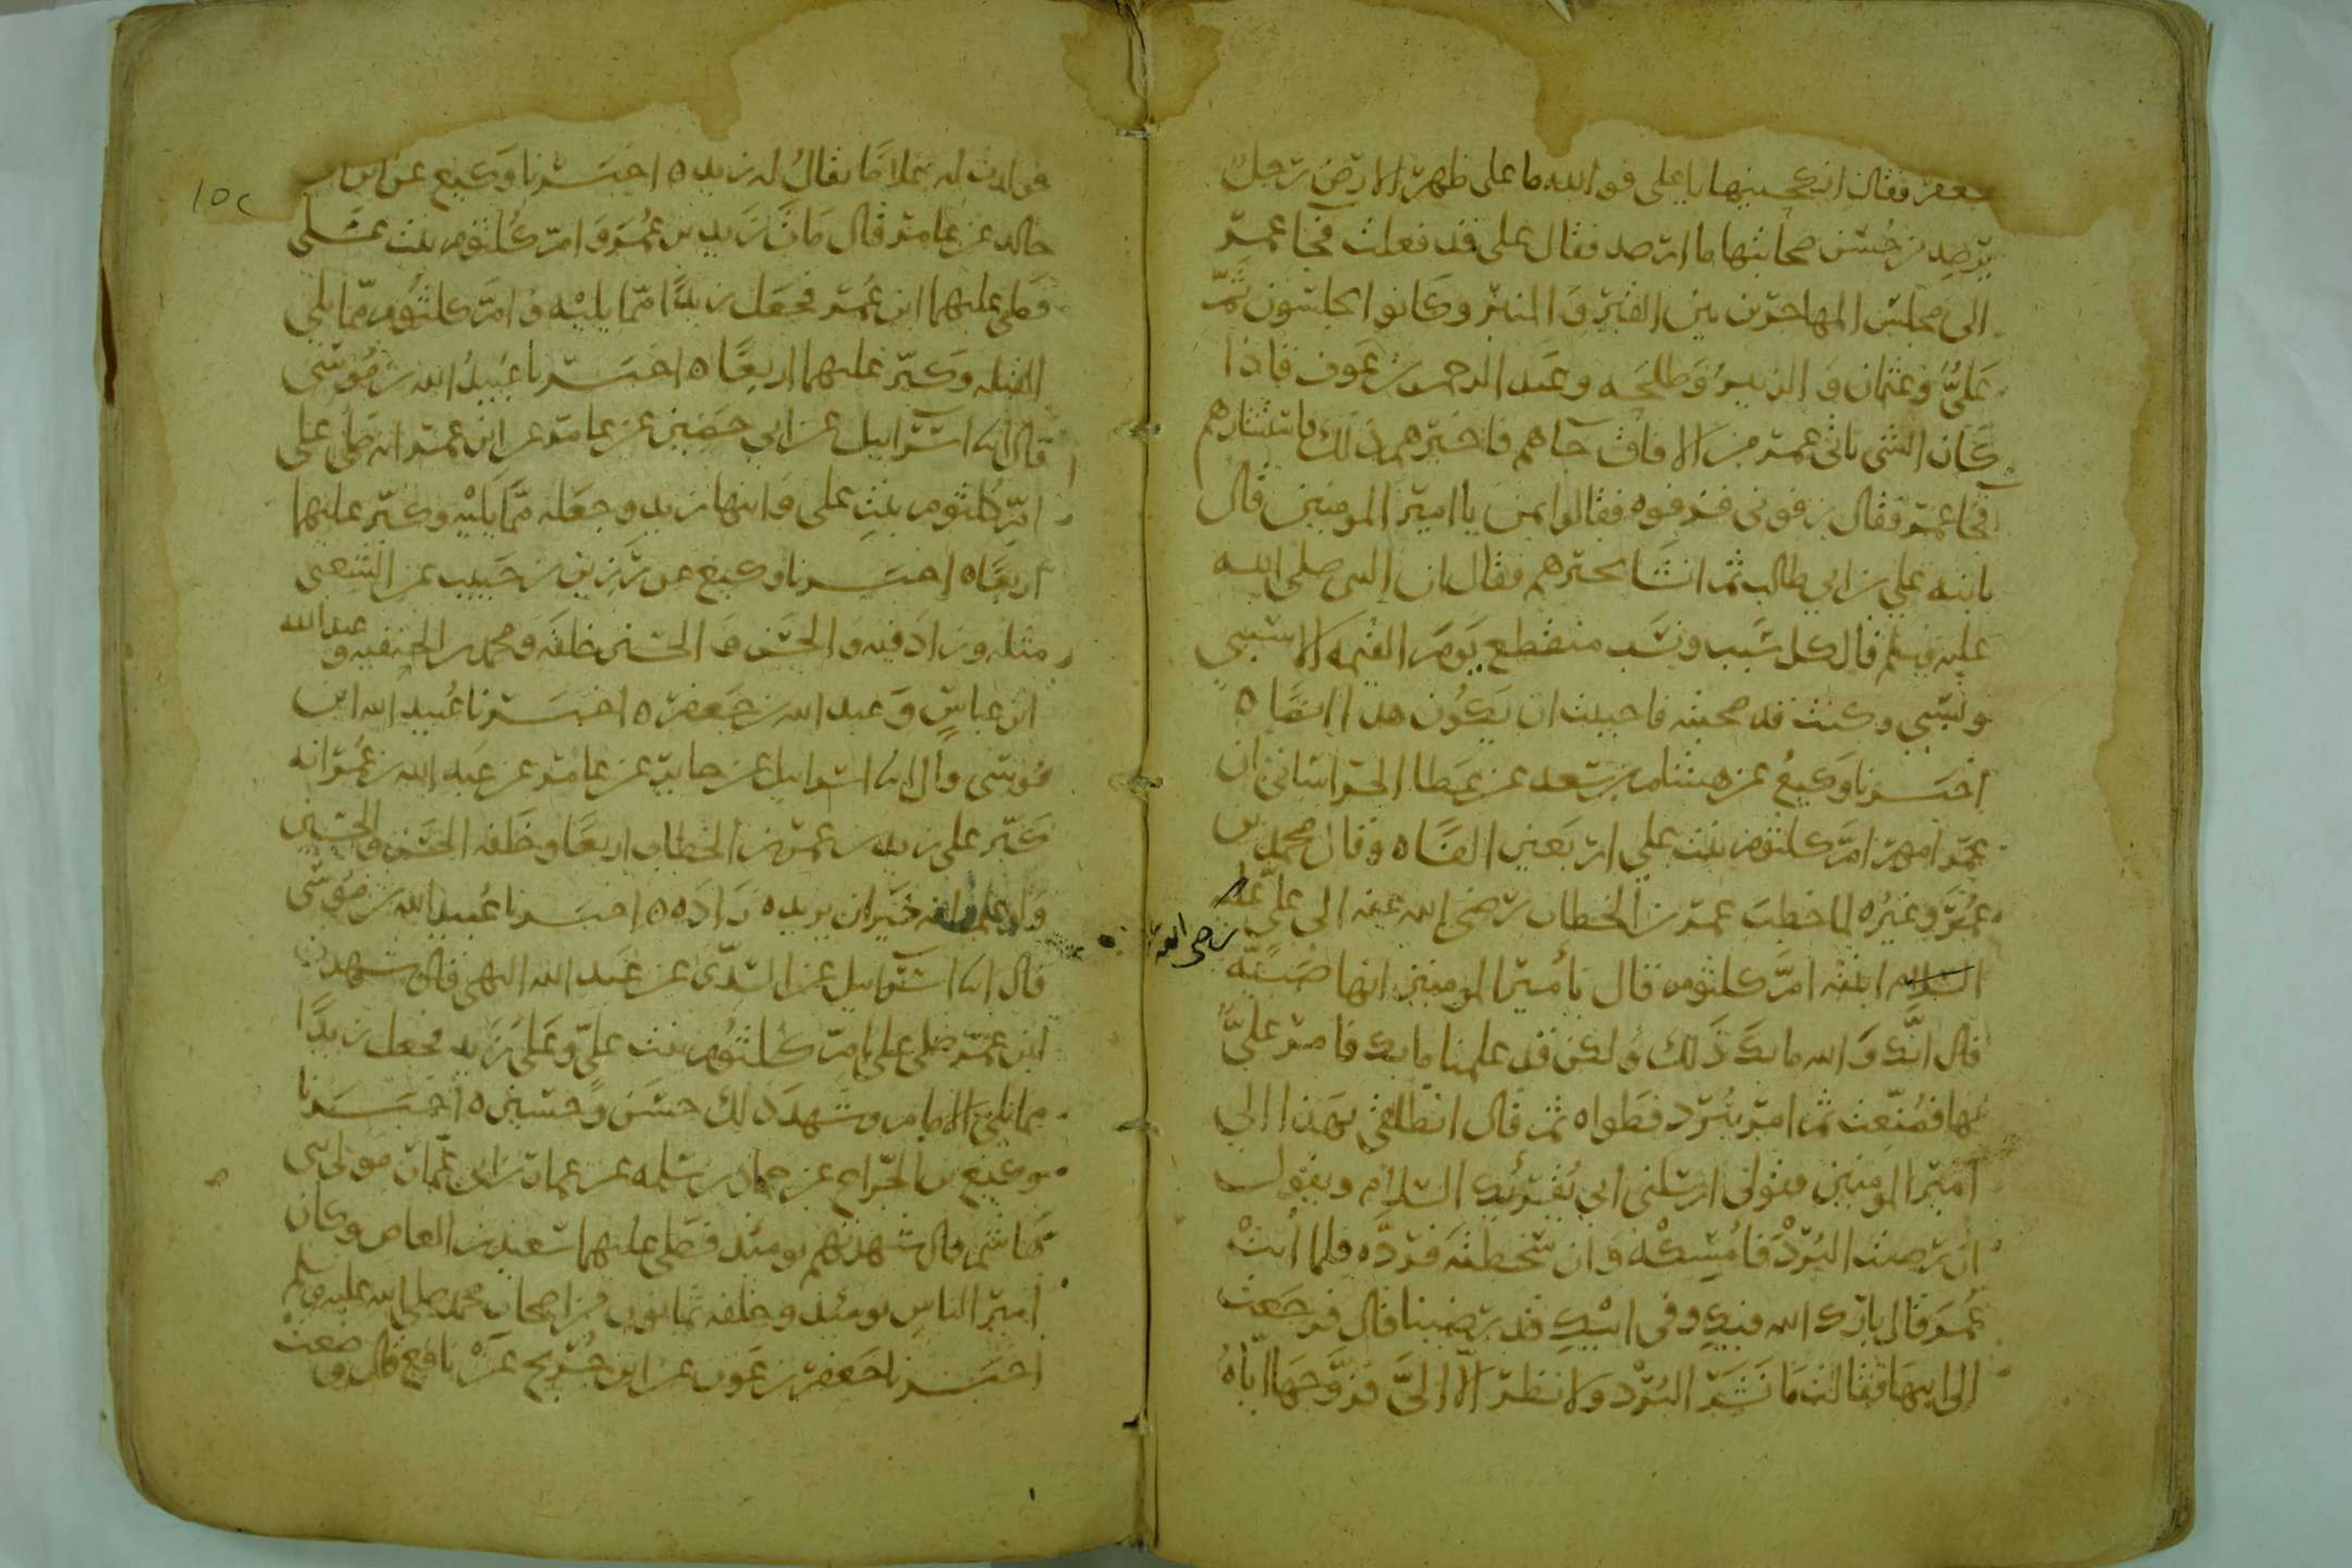 جعفر فقال انكحنيها يا علي فوالله ما على ظهر الارض رجل
يرصد من حسن صحابتها ما ارصد فقال علي قد فعلت فجا عمر
الى مجلس المهاجرين بين القبر والمنبر وكانوا يجلسون ثَمّ
عليٌّ وعثمان والزبيرُ وطلحه وعبد الرحمن بن عوف فاذا
كان الشي ياتي عمر من الافاق جاهم فاخبرهم ذلك فاستشارهم
فجا عمر فقال رفوني فرفوه فقالوا بمن يا امير المومنين قال
بابنه علي بن ابي طالب ثم انشا يخبرهم فقال ان النبي صلى الله
عليه وسلم قال كل سبب ونسب منقطع يوم القيمه الا سببي
ونسبي وكنت قد صحبته فاحببت ان يكون هذا ايضًا ه
اخبــرنا وكيعُ عن هشام بن سعد عن عطا الخراساني ان
عمر امهر امَّ كلثوم بنت علي اربعين الفًا ه وقال محمد بن
عُمَر وغيرُه لما خطب عمر بن الخطاب رضي الله عنه الى عليّ عليه
رضي الله
السلام ابنته امَّ كلثوم قال يا مير المومنين انها صبيّه
قال انّك والله ما بك ذلك ولكن قد علمنا ما بك فامر عليٌّ
بها فصُنّعت ثم امر ببُرد فطواه ثم قال انطلقي بهذا الى
امير المومنين فقولى ارسلنى ابي يُقرئك السلام ويقول
ان رضيت البُرْدَ فامسِكْه وان سخطته فردّه فلما اتتْ
عُمَر قال بارك الله فيكِ وفي ابيكِ قد رضينا قال فرجعت
الى ابيها فقالت ما نشَر البُرْد ولا نظر الّا الىَّ فزوّجها اياه
١٥٢
فولدت له غلامًا يقالُ له زيد ه اخبــرنا وكيع عن ابن ابي
خالد عن عامر قال مات زيد بن عُمر وامّ كُلثوم بنت علي
فصلى عليهما ابن عُمر فجعل زيدًا ممّا يليْه وامَّ كلثوم ممّا يلي
القبله وكبّر عليهما اربعًا ه اخبــرنا عُبيدُ الله بن موسى
قال انا اسرايل عن ابي حصين عن عامر عن ابن عمر انه صلّى على
امّ كُلثوم بنتِ علي وابنها زيد وجعله ممّا يَليْه وكبّر عليهما
اربعًا ه اخبــرنا وكيع عن زيد بن حبيب عن الشعبي
مثله وزاد فيه والحسن والحسين خلفه ومحمد بن الحنفيه وعبد الله
ابن عباسٍ وعبد الله بن جعفر ه اخبــرنا عُبيد الله ابن
موسى قال انا اسرايل عن جابر عن عامر عن عبد الله بن عُمر انه
كبّر على زيد بن عمر بن الخطاب اربعًا وخلفه الحسن والحسين
ولو علم انه خيرٌ ان يزيده زاده ه اخبــرنا عُبيد الله بن موسى
قال انا اسرايل عن السدّى عن عبد الله البهي قال شهدت
ابن عمر صلى على امّ كلثُوم بنت عليّ وعلى زيد فجعل زيدًا
مما يلي الامام وشهد ذلك حسَن وحسين ه اخبــرنا
وكيع بن الجراح عن حماد بن سلمه عن عمار بن ابي عمار مولى بني
هاشم قال شهدتهم يومئذ فصلى عليهما سعيد بن العاص وكان
امير الناسِ يومئذ وخلفه ثمانون من اصحاب محمد صلى الله عليه وسلم
اخبــرنا جعفر بن عون عن ابن جُريج عن نافع قال وضعت